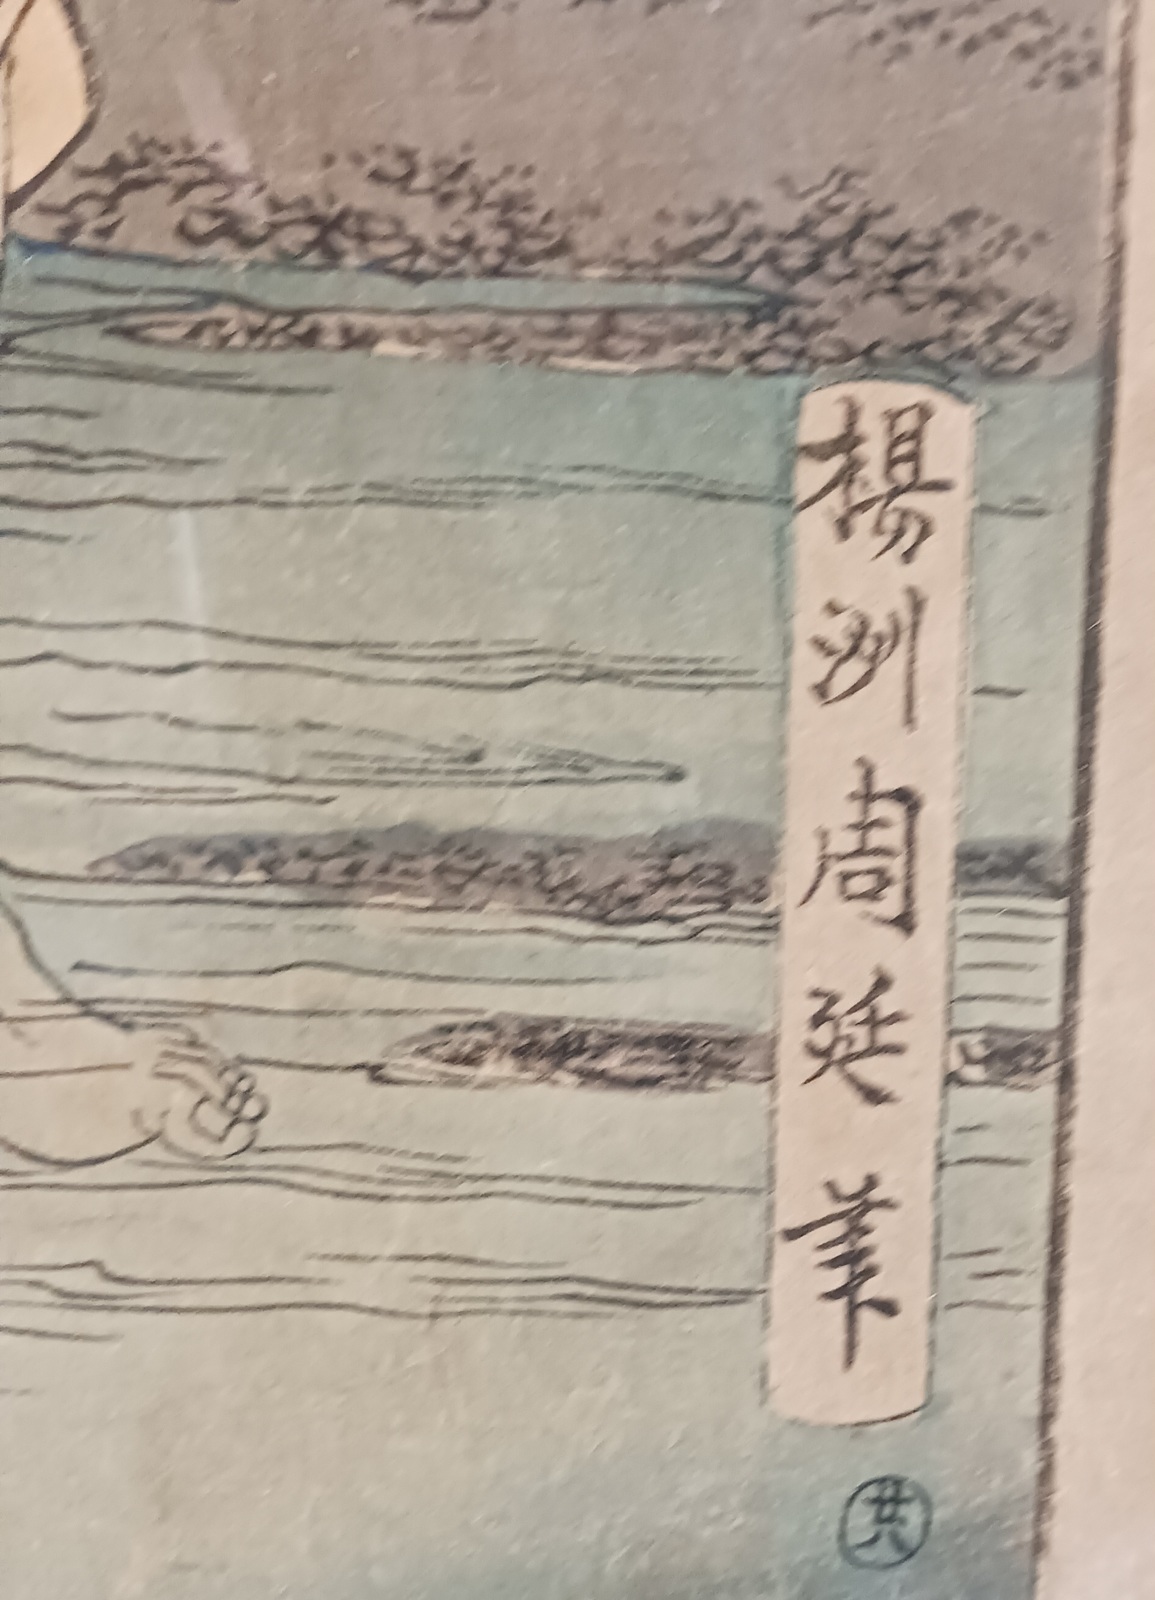 楊洲周延筆
共